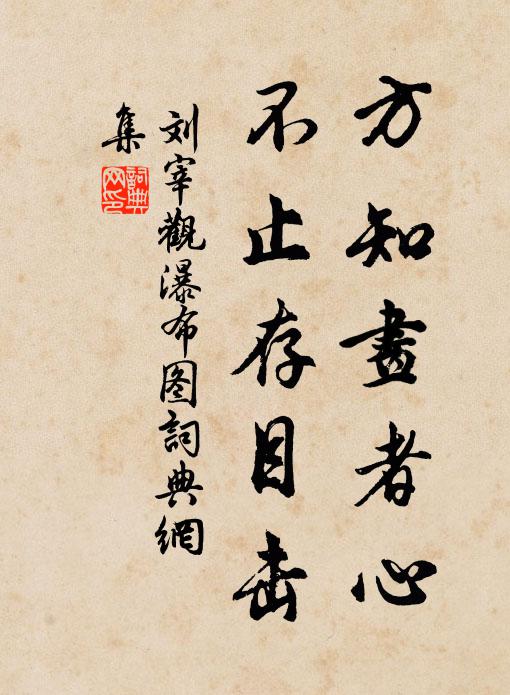 方知畫者心
不止存目击
刘宰觀瀑布图詞典網
集
詞典網印